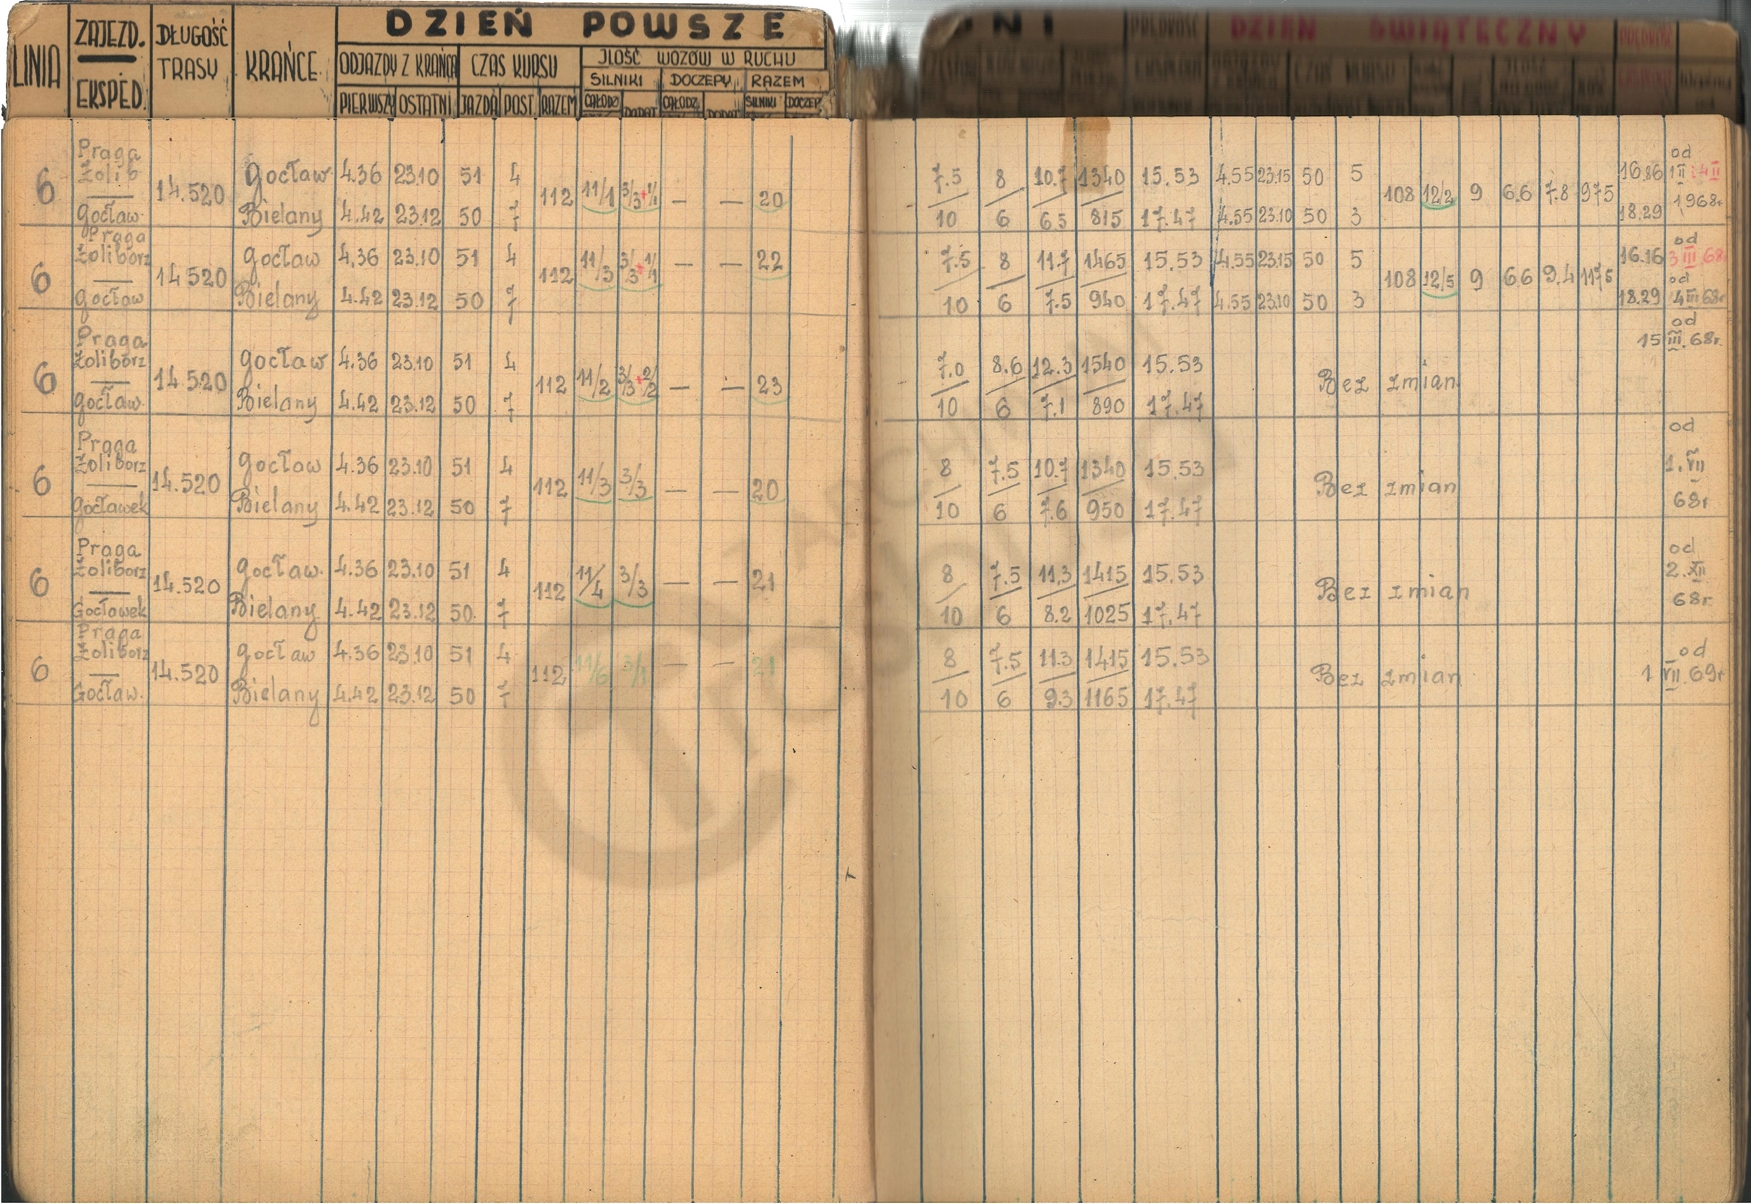 DZIEŃ POWSZE NI DZIEŃ ŚWIĄTECZNY
LINIA ZAJEZD. EKSPED. DŁUGOŚĆ TRASY KRAŃCE ODJAZDY Z KRAŃCA CZAS KURSU JLOŚĆ WOZÓW W RUCHU
SILNIKI DOCZEPY RAZEM
PIERWSZY OSTATNI JAZDA POST. RAZEM CAŁODZ DODAT CAŁODZ DODAT SILNIKI DOCZEP
Praga Żolib gocław 4.36 23.10 51 4 7.5 8 10.7 1340 15.53 4.55 23.15 50 5 16.86 od
6 14.520 112 11/1 3/3+1/1 — — 20 108 12/2 9 6.6 7.8 975 1968r
gocław. Bielany 4.42 23.12 50 7 10 6 6.5 815 17.47 4.55 23.10 50 3 18.29
Praga Żoliborz gocław 4.36 23.10 51 4 7.5 8 11.7 1465 15.53 4.55 23.15 50 5 16.16 od 3 III 68
6 14520 112 11/3 3/3+1/1 — — 22 108 12/5 9 6.6 9.4 1175 od
gocław Bielany 4.42 23.12 50 7 10 6 7.5 940 17.47 4.55 23.10 50 3 18.29 4 III 68r
Praga Żoliborz gocław 4.36 23.10 51 4 7.0 8.6 12.3 1540 15.53 od 15 III. 68r.
6 14.520 112 11/2 3/3+2/2 — — 23 Bez zmian
gocław. Bielany 4.42 23.12 50 7 10 6 7.1 890 17.47
Praga Żoliborz gocław 4.36 23.10 51 4 8 7.5 10.7 1340 15.53 od
6 14.520 112 11/3 3/3 — — 20 Bez zmian 1. VII
gocławek Bielany 4.42 23.12 50 7 10 6 7.6 950 17.47 68r
Praga Żoliborz gocław. 4.36 23.10 51 4 8 7.5 11,3 1415 15.53 od 2. XII
6 14.520 112 11/4 3/3 — — 21 Bez zmian
Gocławek Bielany 4.42 23.12 50. 7 10 6 8.2 1025 17.47 68r
Praga Żoliborz gocław 4.36 23.10 51 4 8 7.5 11.3 1415 15.53 od
6 14.520 112 11/6 3/1 — — 21 Bez zmian 1 VII. 69r
Gocław. Bielany 4.42 23.12 50 7 10 6 9.3 1165 17.47